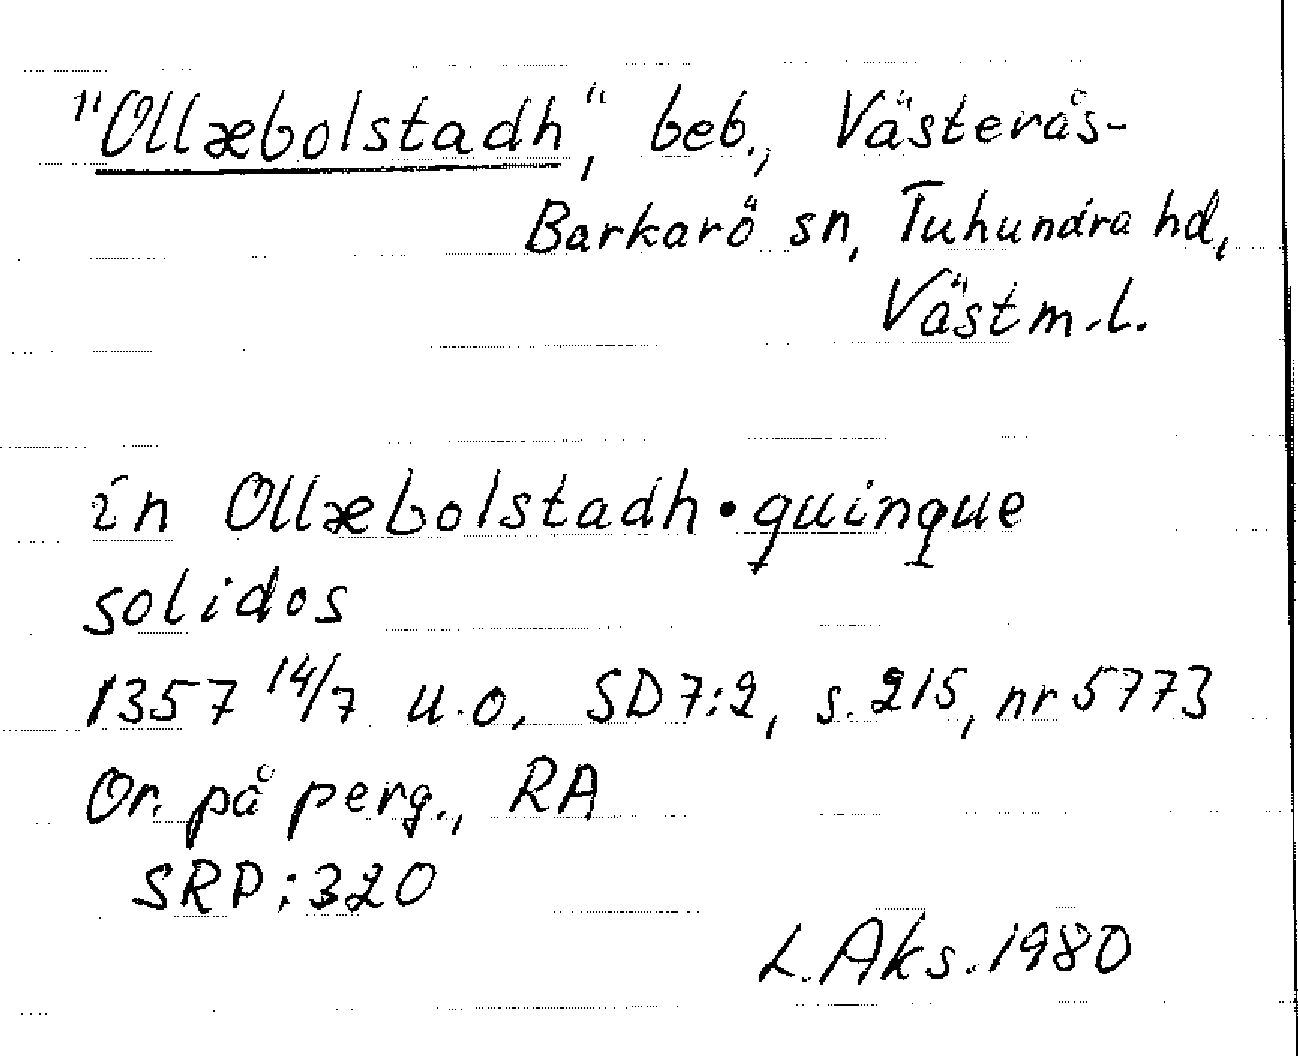 "Ollæbolstadh", beb., Västerås-
Barkarö sn, Tuhundra hd,
Västm.l.
in Ollæbolstadh • quinque
solidos
1357 14/7 u.o. SD 7:2, s. 215, nr 5773
Or. på perg., RA
SRP: 320
L. Aks. 1980